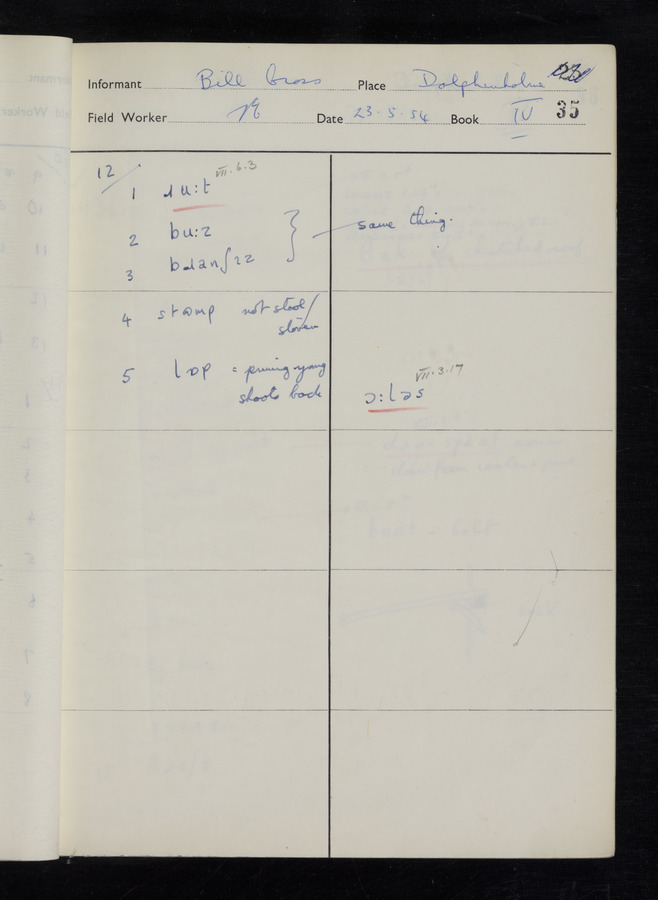 Informant Bill Cross Place Dolphinholme
Field Worker Date 23.5.54 Book IV 35
12/
1 ɹu:t VII.6.3
2 bu:z
3 bɹanʃɪz } same thing.
4 stɒmp not stool/
stoven
5 lɒp = pruning young
shoots back
ɔ:ləs VII.3.17